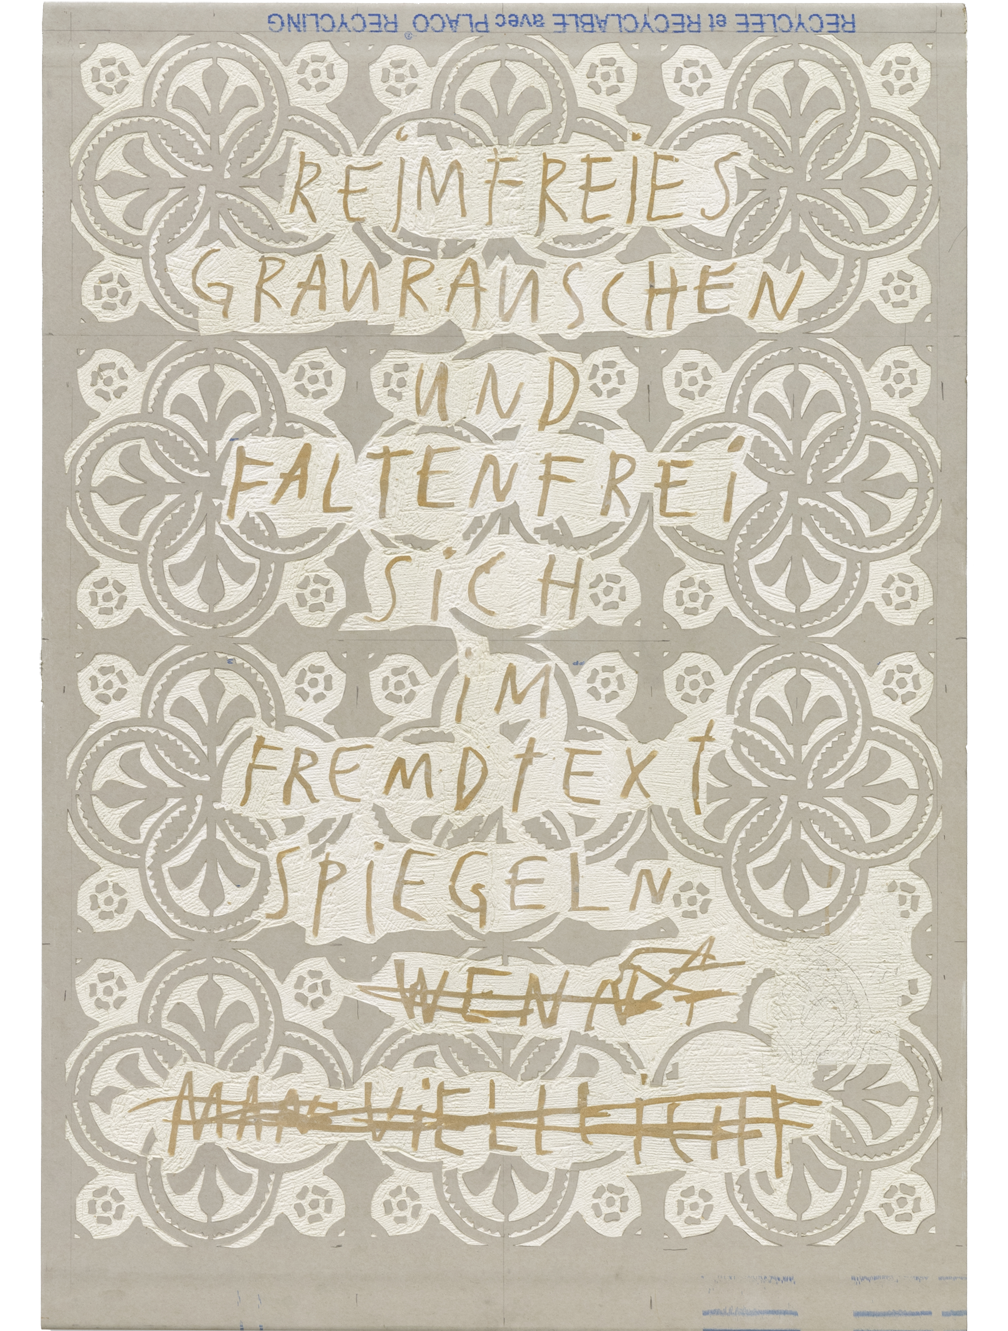 RECYCLEE et RECYCLABLE avec PLACO® RECYCLING
REiMFREiES
GRAURAUSCHEN
UND
FALTENFREi
SiCH
iM
FREMDtEXt
SPiEGELN
WENN
MAN ViELLEiCHT